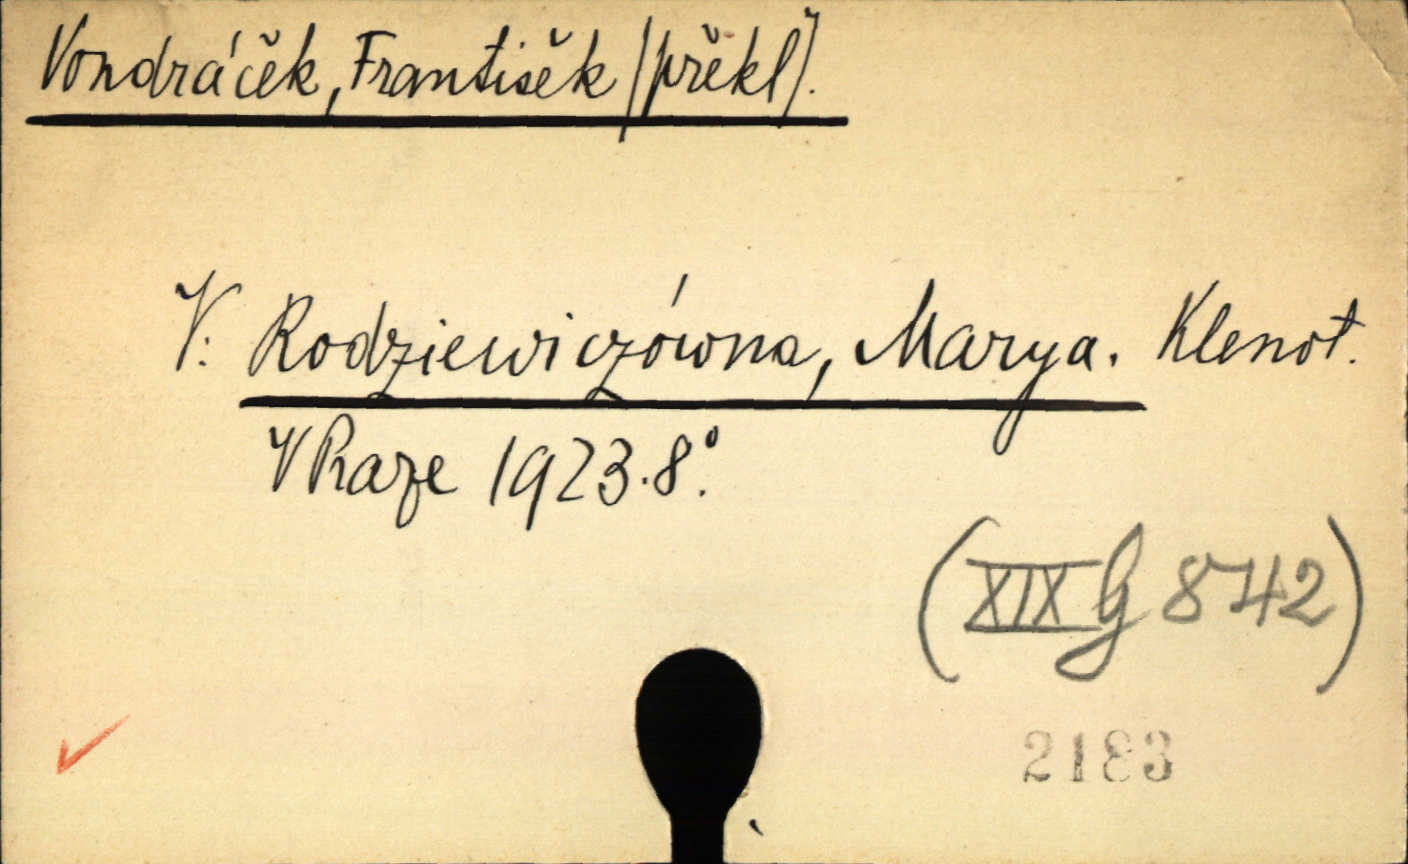 Vondráček, František (překl).
V: Rodziewiczówna, Marya. Klenot.
V Praze 1923. 8°.
(XIX G 8742)
2183